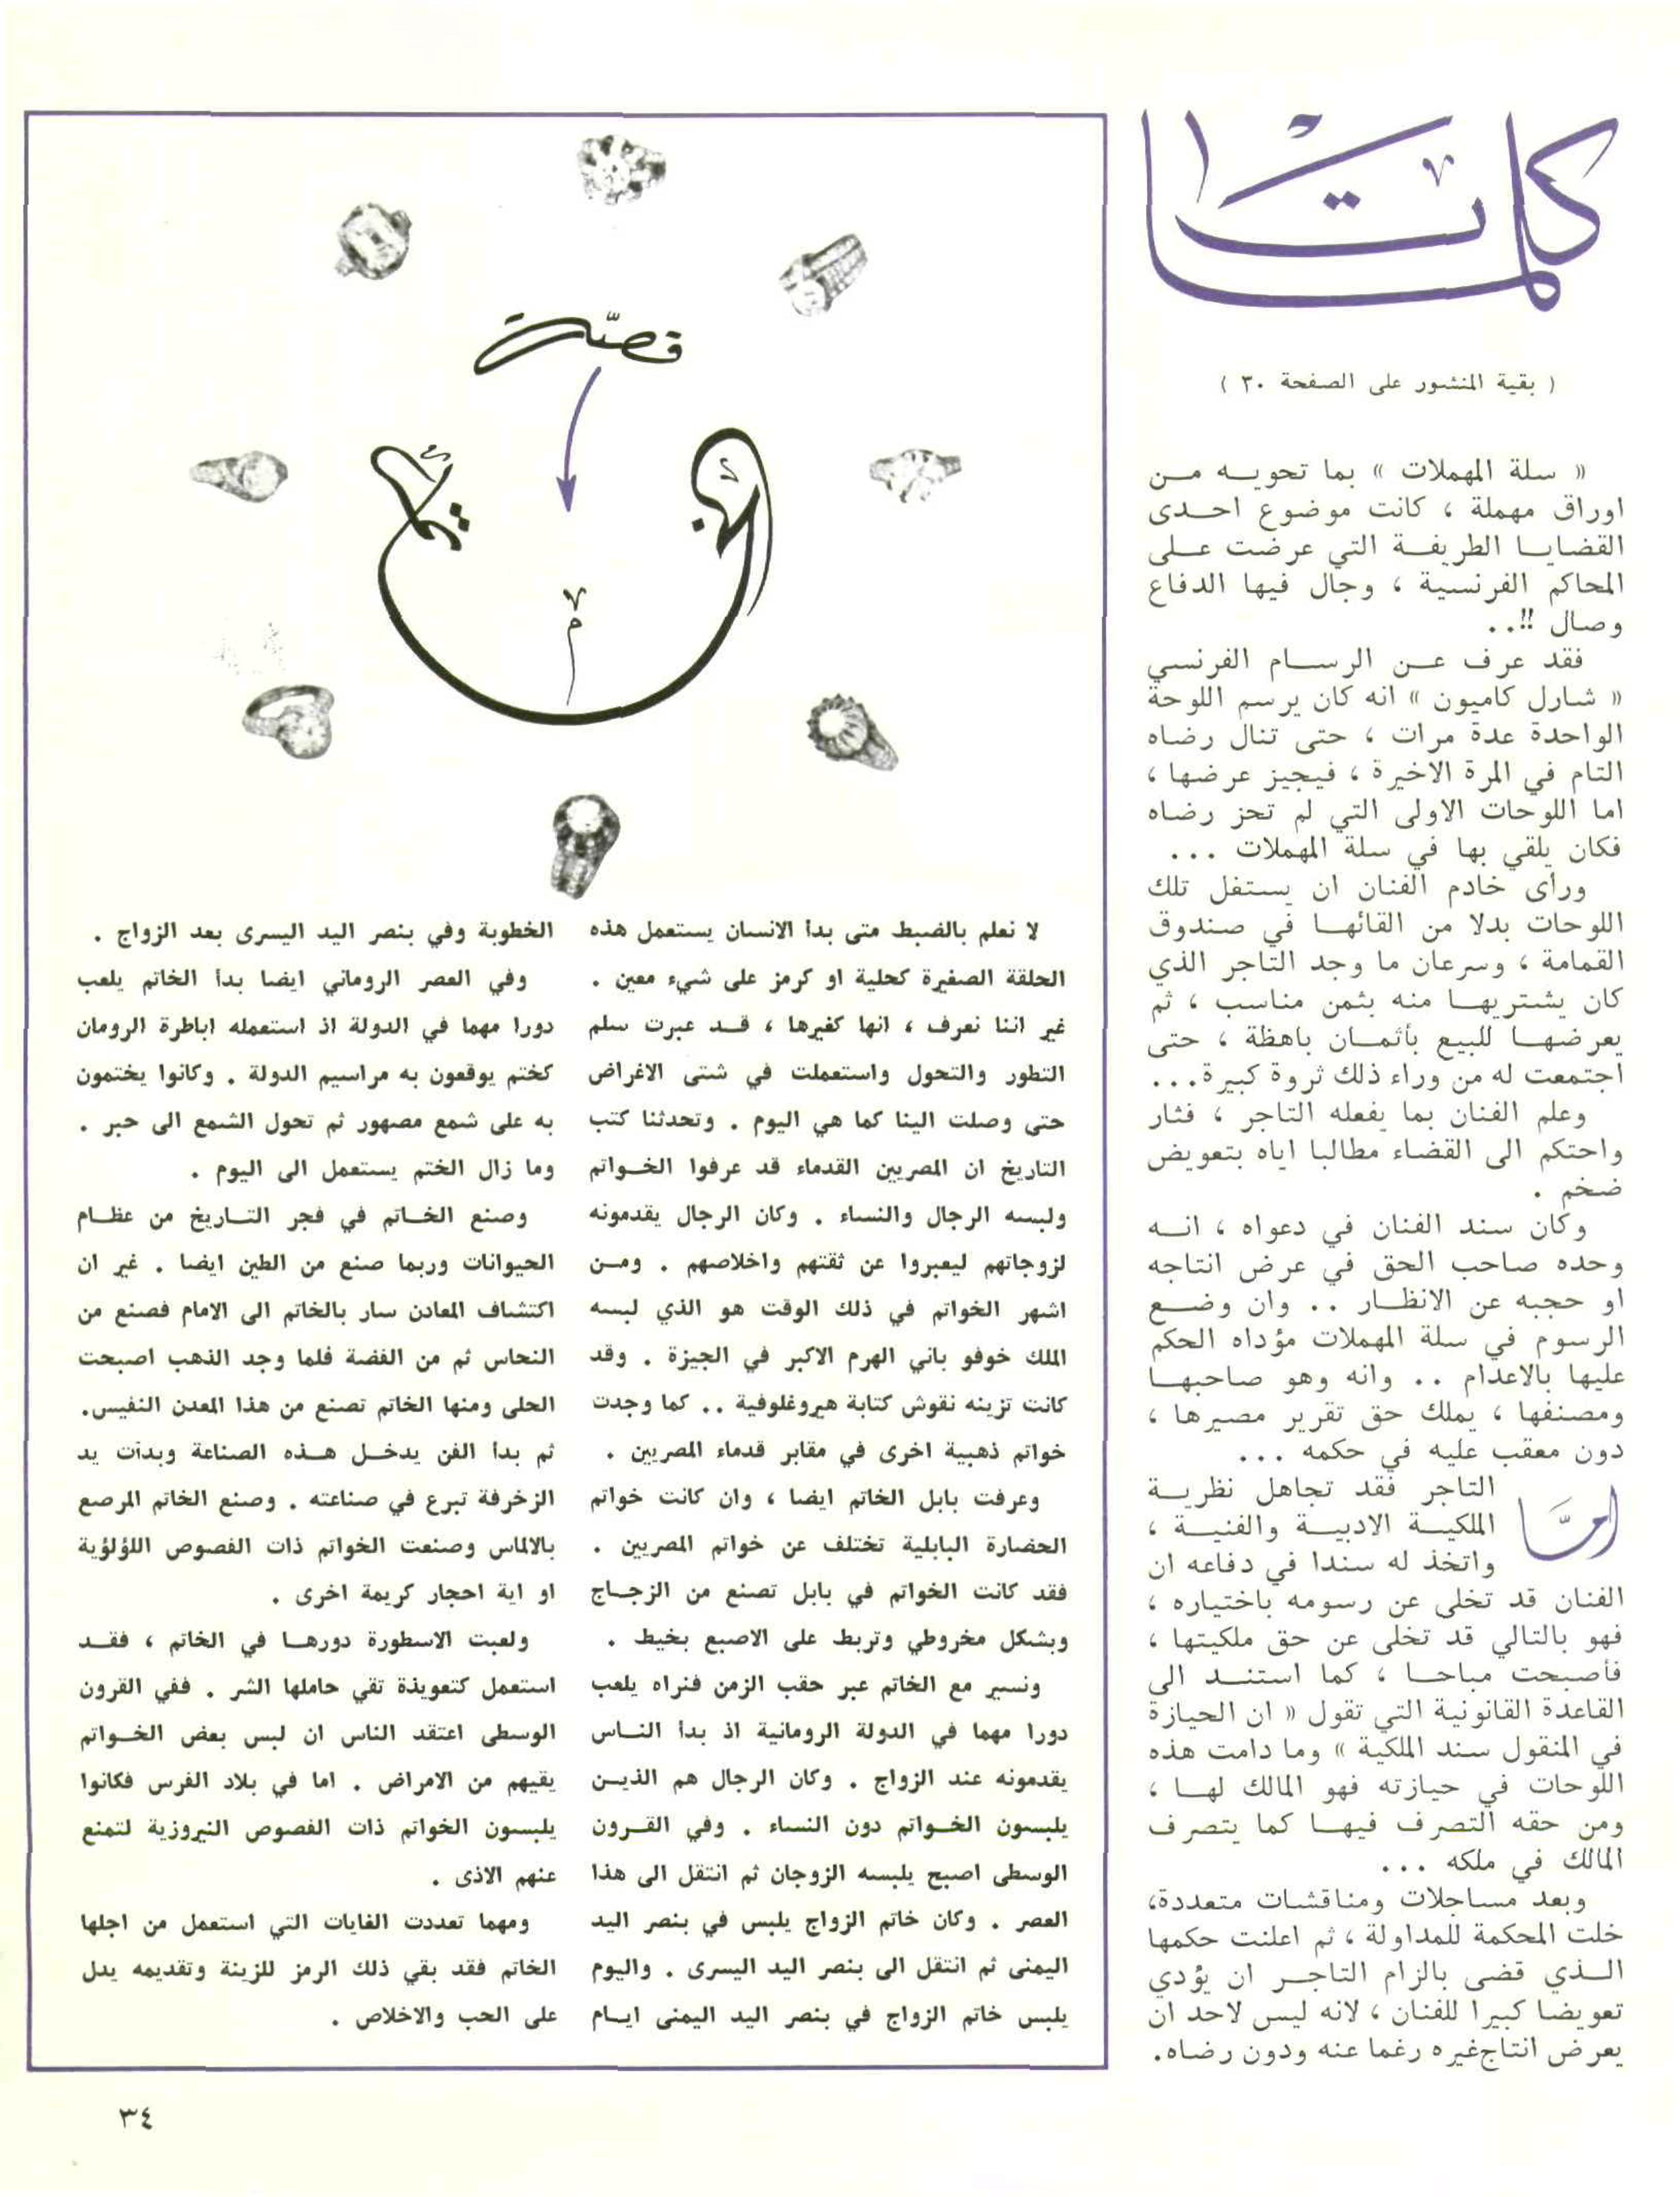 كلمات
( بقية المنشور على الصفحة ٣٠ )
« سلة المهملات » بما تحويــه مــن
اوراق مهملة ، كانت موضوع احــدى
القضايــا الطريفــة التي عرضت علــى
المحاكم الفرنسية ، وجال فيها الدفاع
وصال !!..
فقد عرف عــن الرســام الفرنسي
« شارل كاميون » انه كان يرسم اللوحة
الواحدة عدة مرات ، حتى تنال رضاه
التام في المرة الاخيرة ، فيجيز عرضها ،
اما اللوحات الاولى التي لم تحز رضاه
فكان يلقي بها في سلة المهملات ...
ورأى خادم الفنان ان يستغل تلك
اللوحات بدلا من القائهــا في صندوق
القمامة ، وسرعان ما وجد التاجر الذي
كان يشتريهــا منه بثمن مناسب ، ثم
يعرضهــا للبيع بأثمــان باهظة ، حتى
اجتمعت له من وراء ذلك ثروة كبيرة...
وعلم الفنان بما يفعله التاجر ، فثار
واحتكم الى القضاء مطالبا اياه بتعويض
ضخم .
وكان سند الفنان في دعواه ، انــه
وحده صاحب الحق في عرض انتاجه
او حجبه عن الانظــار .. وان وضــع
الرسوم في سلة المهملات مؤداه الحكم
عليها بالاعدام .. وانه وهو صاحبهــا
ومصنفها ، يملك حق تقرير مصيرها ،
دون معقب عليه في حكمه ...
امّا التاجر فقد تجاهل نظريــة
الملكيــة الادبيــة والفنيــة ،
واتخذ له سندا في دفاعه ان
الفنان قد تخلى عن رسومه باختياره ،
فهو بالتالي قد تخلى عن حق ملكيتها ،
فأصبحت مباحــا ، كما استنــد الى
القاعدة القانونية التي تقول « ان الحيازة
في المنقول سند الملكية » وما دامت هذه
اللوحات في حيازته فهو المالك لهــا ،
ومن حقه التصرف فيهــا كما يتصرف
المالك في ملكه ...
وبعد مساجلات ومناقشات متعددة،
خلت المحكمة للمداولة ، ثم اعلنت حكمها
الــذي قضى بالزام التاجــر ان يؤدي
تعويضا كبيرا للفنان ، لانه ليس لاحد ان
يعرض انتاج غيره رغما عنه ودون رضاه.
قصّة
الخاتم
لا نعلم بالضبط متى بدأ الانسان يستعمل هذه
الحلقة الصغيرة كحلية او كرمز على شيء معين .
غير اننا نعرف ، انها كغيرها ، قــد عبرت سلم
التطور والتحول واستعملت في شتى الاغراض
حتى وصلت الينا كما هي اليوم . وتحدثنا كتب
التاريخ ان المصريين القدماء قد عرفوا الخــواتم
ولبسه الرجال والنساء . وكان الرجال يقدمونه
لزوجاتهم ليعبروا عن ثقتهم واخلاصهم . ومــن
اشهر الخواتم في ذلك الوقت هو الذي لبسه
الملك خوفو باني الهرم الاكبر في الجيزة . وقد
كانت تزينه نقوش كتابة هيروغلوفية .. كما وجدت
خواتم ذهبية اخرى في مقابر قدماء المصريين .
وعرفت بابل الخاتم ايضا ، وان كانت خواتم
الحضارة البابلية تختلف عن خواتم المصريين .
فقد كانت الخواتم في بابل تصنع من الزجــاج
وبشكل مخروطي وتربط على الاصبع بخيط .
ونسير مع الخاتم عبر حقب الزمن فنراه يلعب
دورا مهما في الدولة الرومانية اذ بدأ النــاس
يقدمونه عند الزواج . وكان الرجال هم الذيــن
يلبسون الخــواتم دون النساء . وفي القــرون
الوسطى اصبح يلبسه الزوجان ثم انتقل الى هذا
العصر . وكان خاتم الزواج يلبس في بنصر اليد
اليمنى ثم انتقل الى بنصر اليد اليسرى . واليوم
يلبس خاتم الزواج في بنصر اليد اليمنى ايــام
الخطوبة وفي بنصر اليد اليسرى بعد الزواج .
وفي العصر الروماني ايضا بدأ الخاتم يلعب
دورا مهما في الدولة اذ استعمله اباطرة الرومان
كختم يوقعون به مراسيم الدولة . وكانوا يختمون
به على شمع مصهور ثم تحول الشمع الى حبر .
وما زال الختم يستعمل الى اليوم .
وصنع الخــاتم في فجر التــاريخ من عظــام
الحيوانات وربما صنع من الطين ايضا . غير ان
اكتشاف المعادن سار بالخاتم الى الامام فصنع من
النحاس ثم من الفضة فلما وجد الذهب اصبحت
الحلى ومنها الخاتم تصنع من هذا المعدن النفيس.
ثم بدأ الفن يدخــل هــذه الصناعة وبدأت يد
الزخرفة تبرع في صناعته . وصنع الخاتم المرصع
بالالماس وصنعت الخواتم ذات الفصوص اللؤلؤية
او اية احجار كريمة اخرى .
ولعبت الاسطورة دورهــا في الخاتم ، فقــد
استعمل كتعويذة تقي حاملها الشر . ففي القرون
الوسطى اعتقد الناس ان لبس بعض الخــواتم
يقيهم من الامراض . اما في بلاد الفرس فكانوا
يلبسون الخواتم ذات الفصوص النيروزية لتمنع
عنهم الاذى .
ومهما تعددت الغايات التي استعمل من اجلها
الخاتم فقد بقي ذلك الرمز للزينة وتقديمه يدل
على الحب والاخلاص .
٣٤